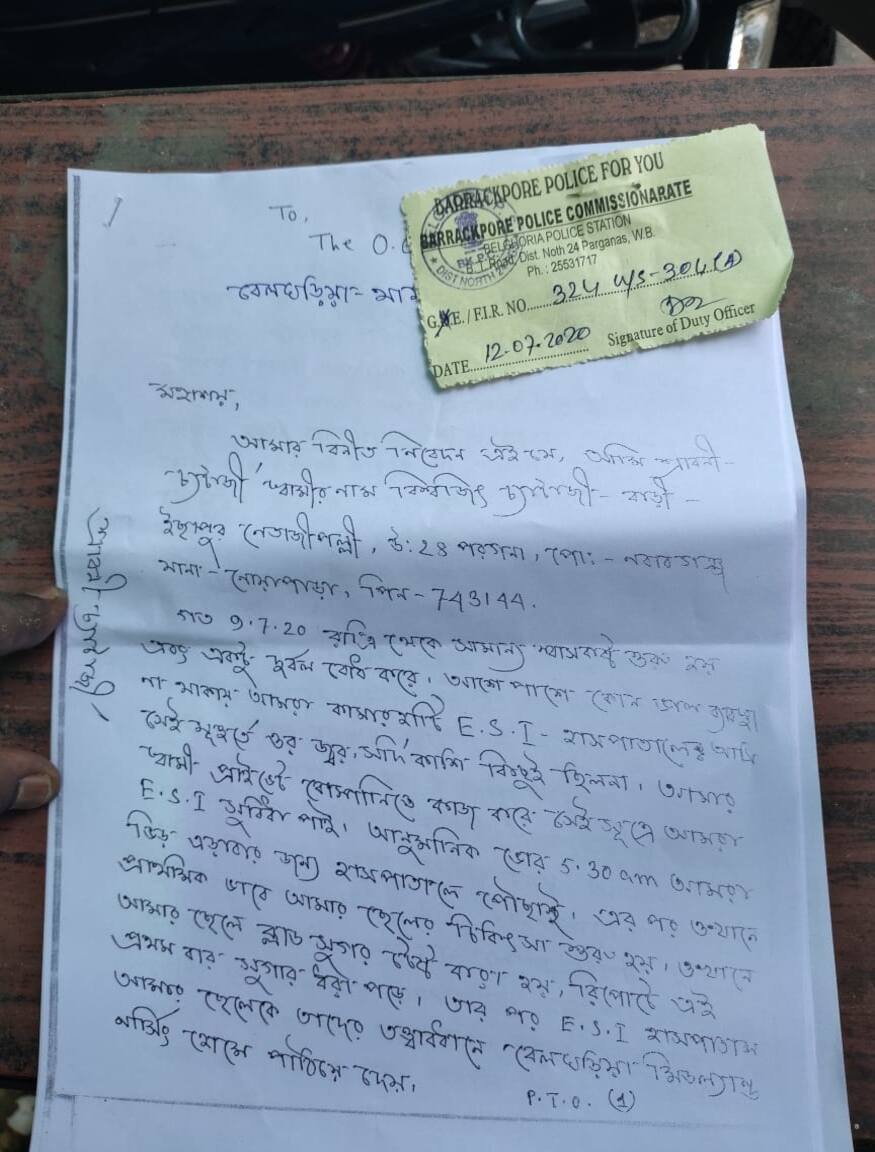 To,
The O.C
বেলঘড়িয়া- থান
BARRACKPORE POLICE FOR YOU
BARRACKPORE POLICE COMMISSIONARATE
BELGHORIA POLICE STATION
B. T. Road, Dist. Noth 24 Parganas, W.B.
Ph. : 25531717
G.D.E. / F.I.R. NO. 324 U/S-304(A)
DATE 12-07-2020 Signature of Duty Officer
মহাশয়,
আমার বিনীত নিবেদন এই যে, আমি শ্রাবনী-
চ্যাটার্জী স্বামীর নাম বিশ্বজিৎ চ্যাটার্জী- বাড়ী-
ইছাপুর নেতাজীপল্লী, উ: 24 পরগনা, পো: - নবাবগঞ্জ
থানা- নোয়াপাড়া, পিন- 743144.
গত 9.7.20 রাত্রি থেকে সামান্য শ্বাসকষ্ট শুরু হয়
এবং একটু দুর্বল বোধ করে। আশে পাশে কোন ভাল ব্যবস্থা
না থাকায় আমরা কামারহাটি E.S.I- হাসপাতালে আসি
সেই মুহূর্তে ওর জ্বর, সর্দি কাশি কিছুই ছিলনা। আমার
স্বামী প্রাইভেট কোম্পানিতে কাজ করে সেই সূত্রে আমরা
E.S.I সুবিধা পাই। আনুমানিক ভোর 5.30 am আমরা
ভিড় এড়াবার জন্য হাসপাতালে পৌছাই। এর পর ওখানে
প্রাথমিক ভাবে আমার ছেলের চিকিৎসা শুরু হয়। ওখানে
আমার ছেলে ব্লাড সুগার টেষ্ট করা হয়, রিপোর্টে এই
প্রথম বার সুগার ধরা পড়ে। তার পর E.S.I হাসপাতাল
আমার ছেলেকে তাদের তত্ত্বাবধানে বেলঘড়িয়া মিডল্যান্ড
নার্সিং হোমে পাঠিয়ে দেয়।
P.T.O. (1)
শ্রাবনী চ্যাটার্জী